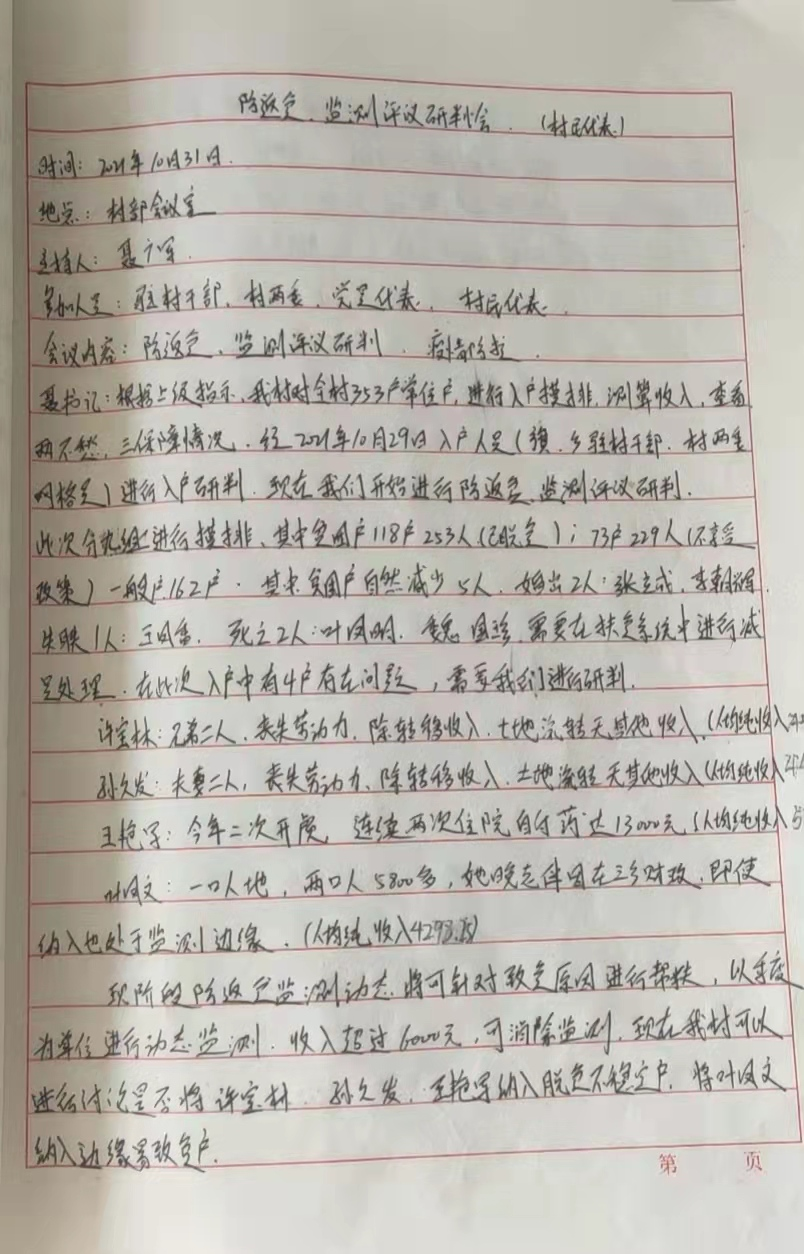 防返贫、监测评议研判会。(村民代表)
时间:2021年10月31日.
地点:村部会议室
主持人:聂广军.
参加人员:驻村干部、村两委、党员代表、村民代表.
会议内容:防返贫、监测评议研判、疫情防控.
聂书记:根据上级指示,我村对全村353户常住户,进行入户摸排,测算收入,查看
两不愁,三保障情况.经2021年10月29日入户人员(镇、乡驻村干部、村两委
网格员)进行入户研判.现在我们开始进行防返贫监测评议研判.
此次分组进行摸排、其中贫困户118户253人(已脱贫);73户229人(不享受
政策)一般户162户.其中贫困户自然减少5人,婚出2人:张立成、李朝辉.
失联1人:王凤香.死亡2人:叶凤明、魏国珍,需要在扶贫系统中进行减
员处理.在此次入户中有4户存在问题,需要我们进行研判.
许宝林:兄弟二人、丧失劳动力、除转移收入、土地流转无其他收入.(人均纯收入
孙久发:夫妻二人,丧失劳动力、除转移收入、土地流转无其他收入(人均纯收入
王艳军:今年二次开颅 连续两次住院自付药达13000元.(人均纯收入
叶凤文:一口人地,两口人5800多,她晚老伴因在三乡财政,即使
纳入也处于监测边缘.(人均纯收入4293.
现阶段防返贫监测动态将可针对致贫原因进行帮扶,以季度
为单位进行动态监测.收入超过6000元,可消除监测.现在我村可以
进行讨论是否将许宝林 孙久发、王艳军纳入脱贫不稳定户.将叶凤文
纳入边缘易致贫户.
第 页